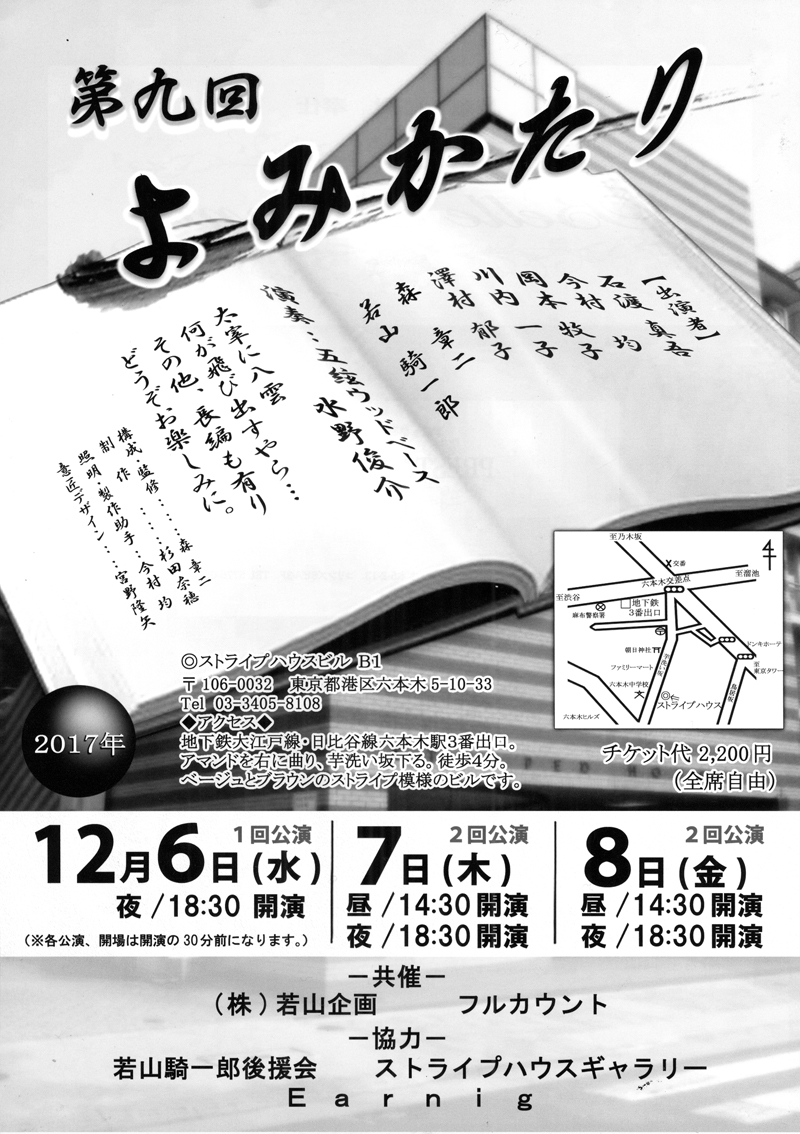 第九回
よみかたり
【出演者】
石渡 真吾
今村 均
岡本 牧子
川内 一子
澤村 郁子
森 章二
若山 騎一郎
演奏：五絃ウッドベース
水野俊介
太宰に八雲
何が飛び出すやら…
その他、長編も有り
どうぞお楽しみに。
構成・監修‥‥‥森 章二
制作‥‥‥杉田奈穂
照明・製作助手‥‥今村 均
意匠デザイン‥‥宮野隆矢
至乃木坂
交番
六本木交差点
至溜池
至渋谷
麻布警察署
地下鉄
3番出口
ドンキホーテ
朝日神社
至東京タワー
ファミリーマート
芋洗い坂
六本木中学校
鳥居坂
ストライプハウス
六本木ヒルズ
◎ストライプハウスビル B1
〒106-0032 東京都港区六本木5-10-33
Tel 03-3405-8108
◆アクセス◆
地下鉄大江戸線・日比谷線六本木駅3番出口。
アマンドを右に曲り、芋洗い坂下る。徒歩4分。
ベージュとブラウンのストライプ模様のビルです。
2017年
チケット代 2,200円
（全席自由）
1回公演
12月6日(水)
夜/18:30 開演
(※各公演、開場は開演の30分前になります。)
2回公演
7日(木)
昼/14:30開演
夜/18:30開演
2回公演
8日(金)
昼/14:30開演
夜/18:30開演
－共催－
(株)若山企画 フルカウント
－協力－
若山騎一郎後援会 ストライプハウスギャラリー
Earnig